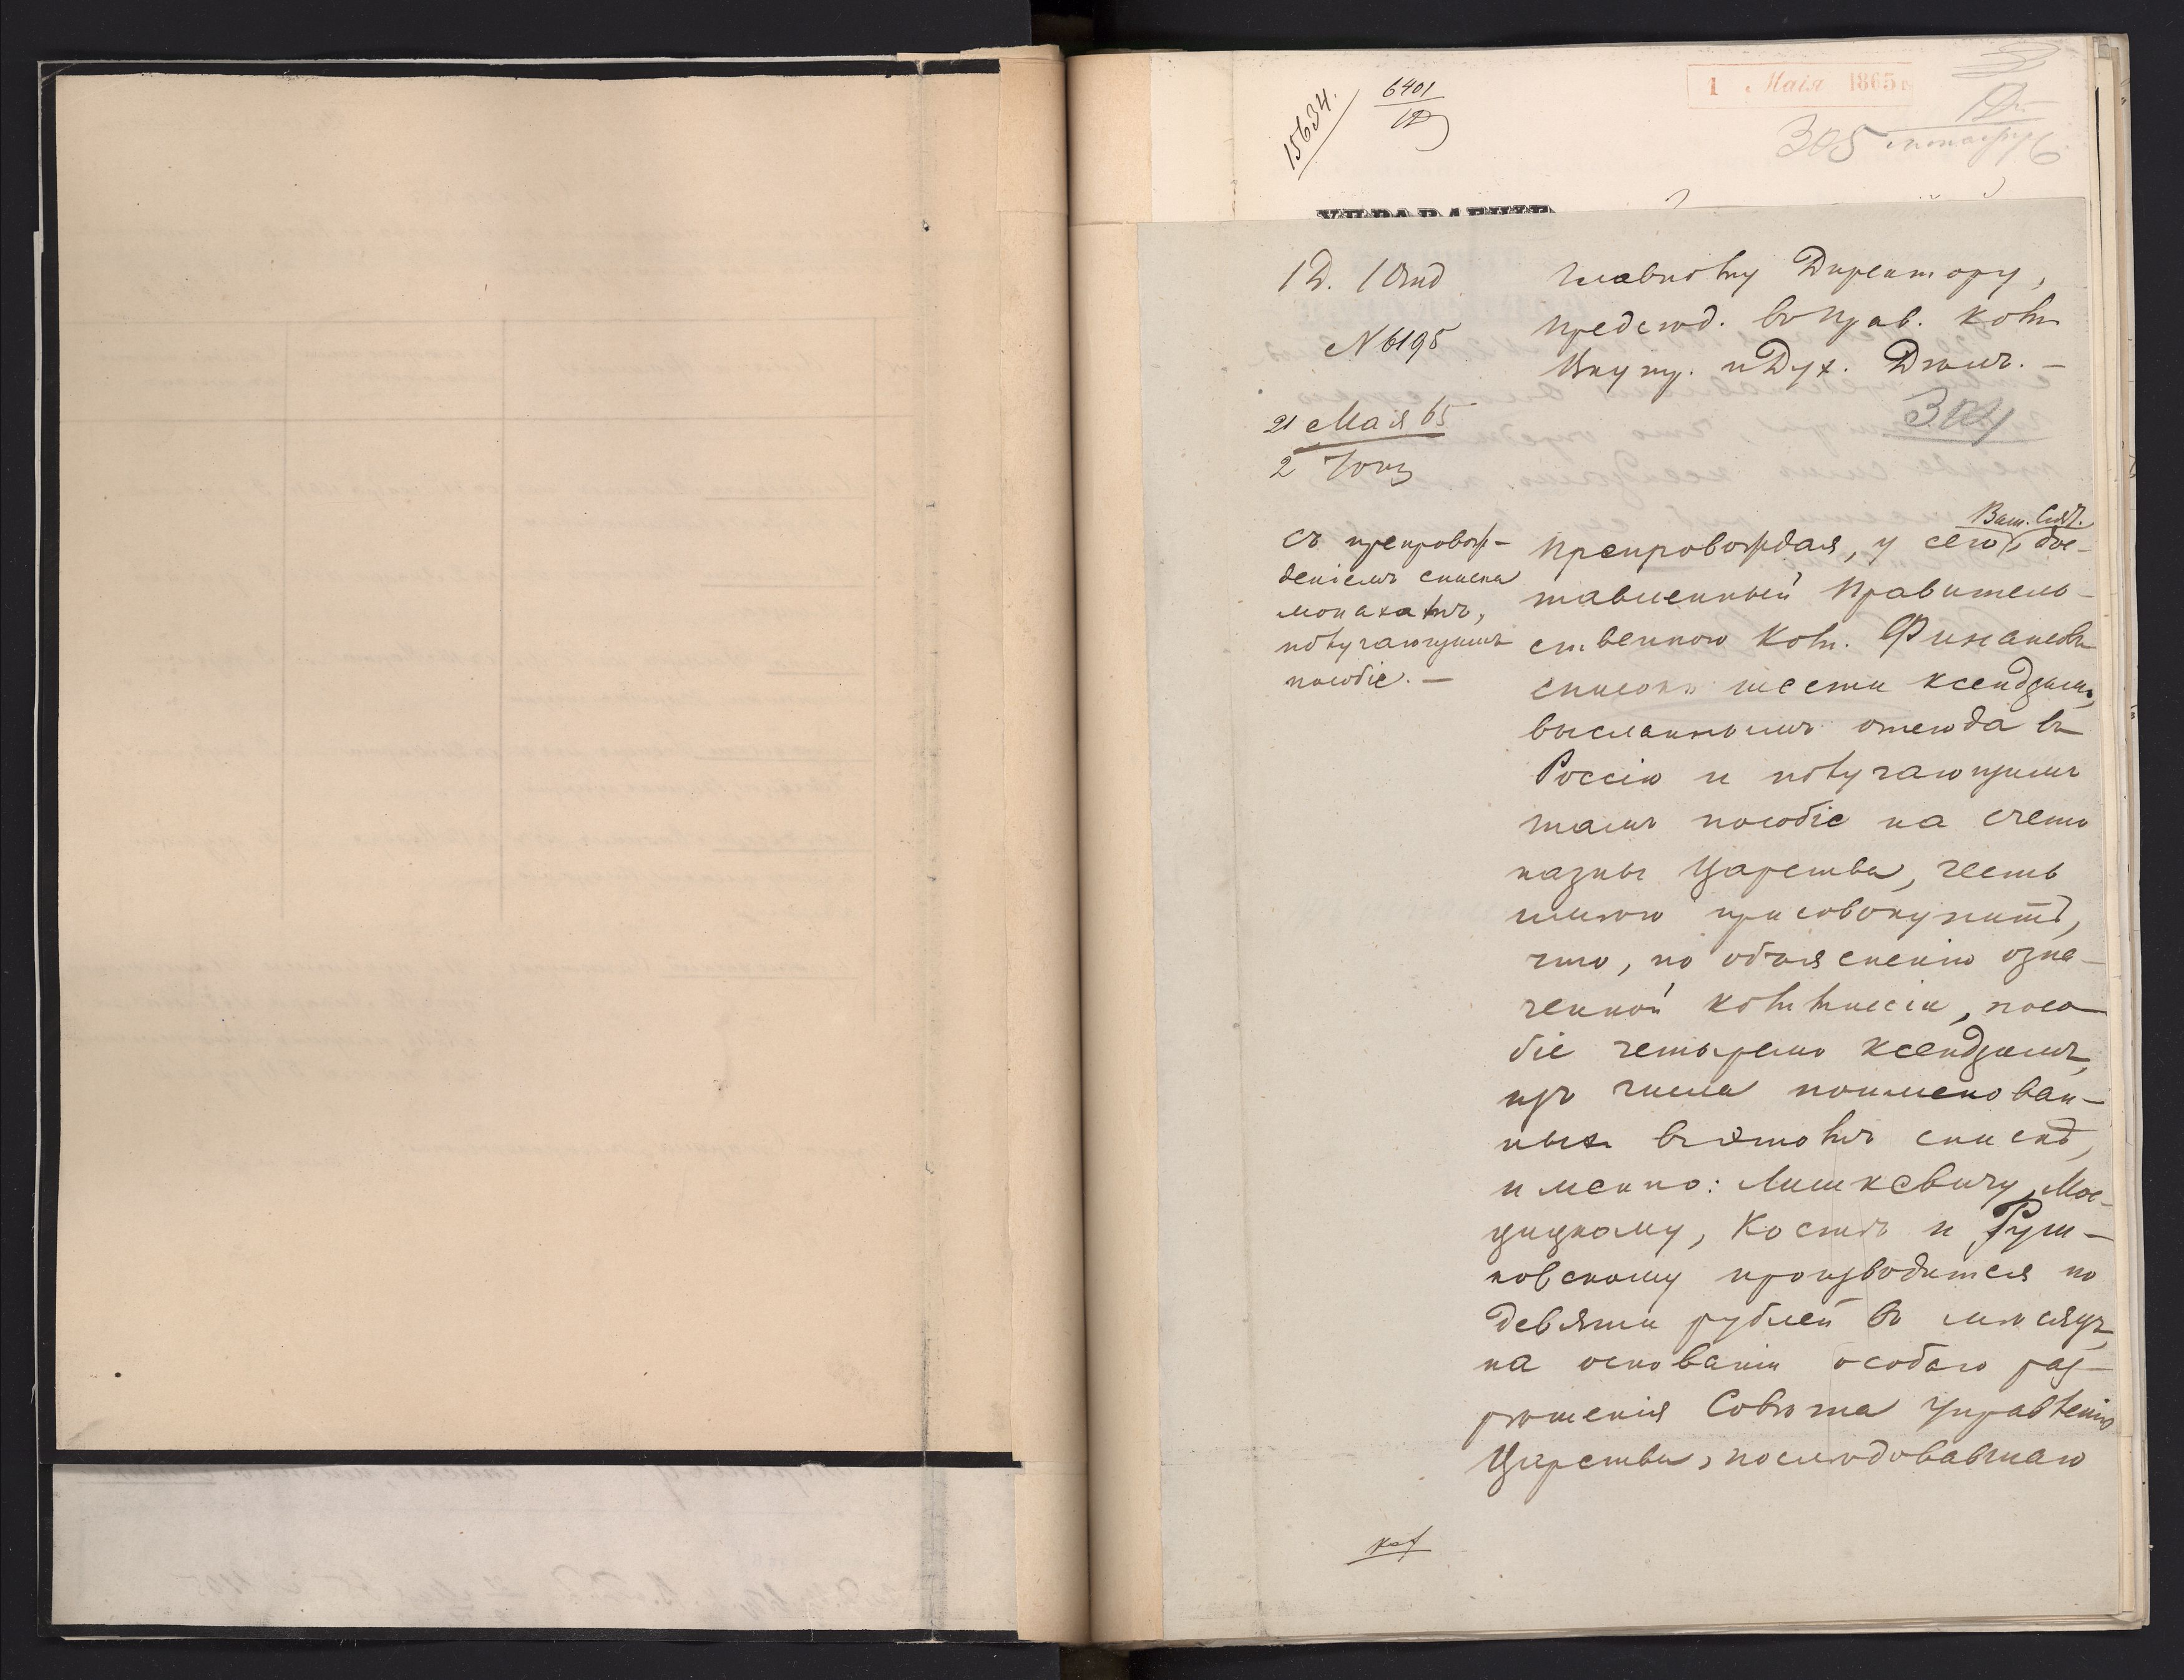 15634.
6401
1 Маія 1865
305
УПРАВЛЕНІЕ
1 Д. 1 Отд
N 6195
21 Мая 65
2 Іюня
Главному Директору,
предсѣд. въ Прав. Ком.
Внутр. и Дух. Дѣлъ. —
304
Съ препровож-
деніемъ списка
монахамъ,
получающимъ
пособіе. —
Ваш. Сіят.
Препровождая, у сего, дос-
тавленный Правитель-
ственною Ком. Финансовъ
списокъ шести ксендзамъ,
высланнымъ отсюда въ
Россію и получающимъ
тамъ пособіе на счетъ
казны Царства, честь
имѣю присовокупить,
что, по объясненію озна-
ченной Коммиссіи, посо-
біе четыремъ ксендзамъ,
изъ числа поименован-
ныхъ въ этомъ спискѣ,
именно: Лишкевичу, Мос-
цицкому, Костѣ и Руш-
ковскому производится по
девяти рублей въ мѣсяцъ,
на основаніи особаго раз-
рѣшенія Совѣта Управленія
Царства, послѣдовавшаго